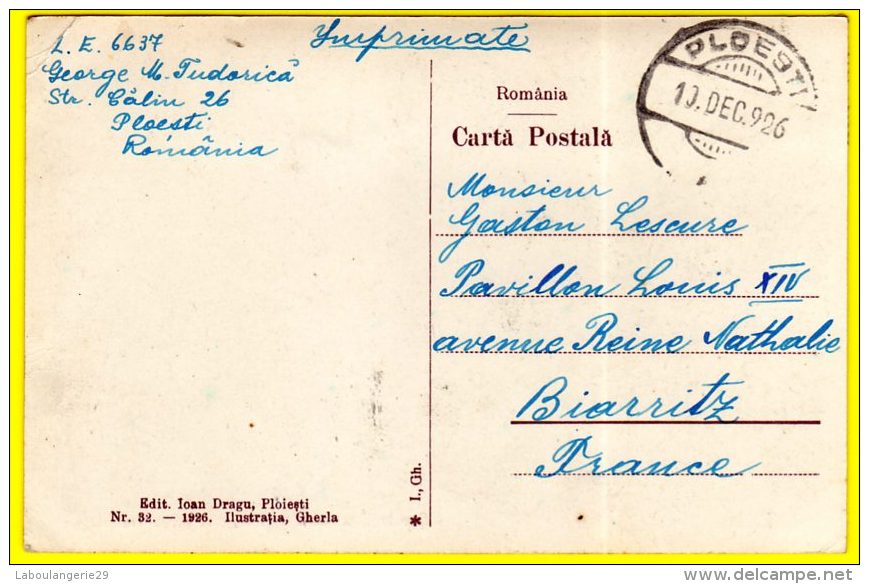 L. E. 6637
George M. Tudorică
Str. Călin 26
Ploesti
România
Imprimate
PLOEȘTI
10.DEC.926
România
Cartă Postală
Monsieur
Gaston Lescure
Pavillon Louis XIV
avenue Reine Nathalie
Biarritz
France
* I., Gh.
Edit. Ioan Dragu, Ploiești
Nr. 32. — 1926. Ilustrația, Gherla
Laboulangerie29
www.delcampe.net